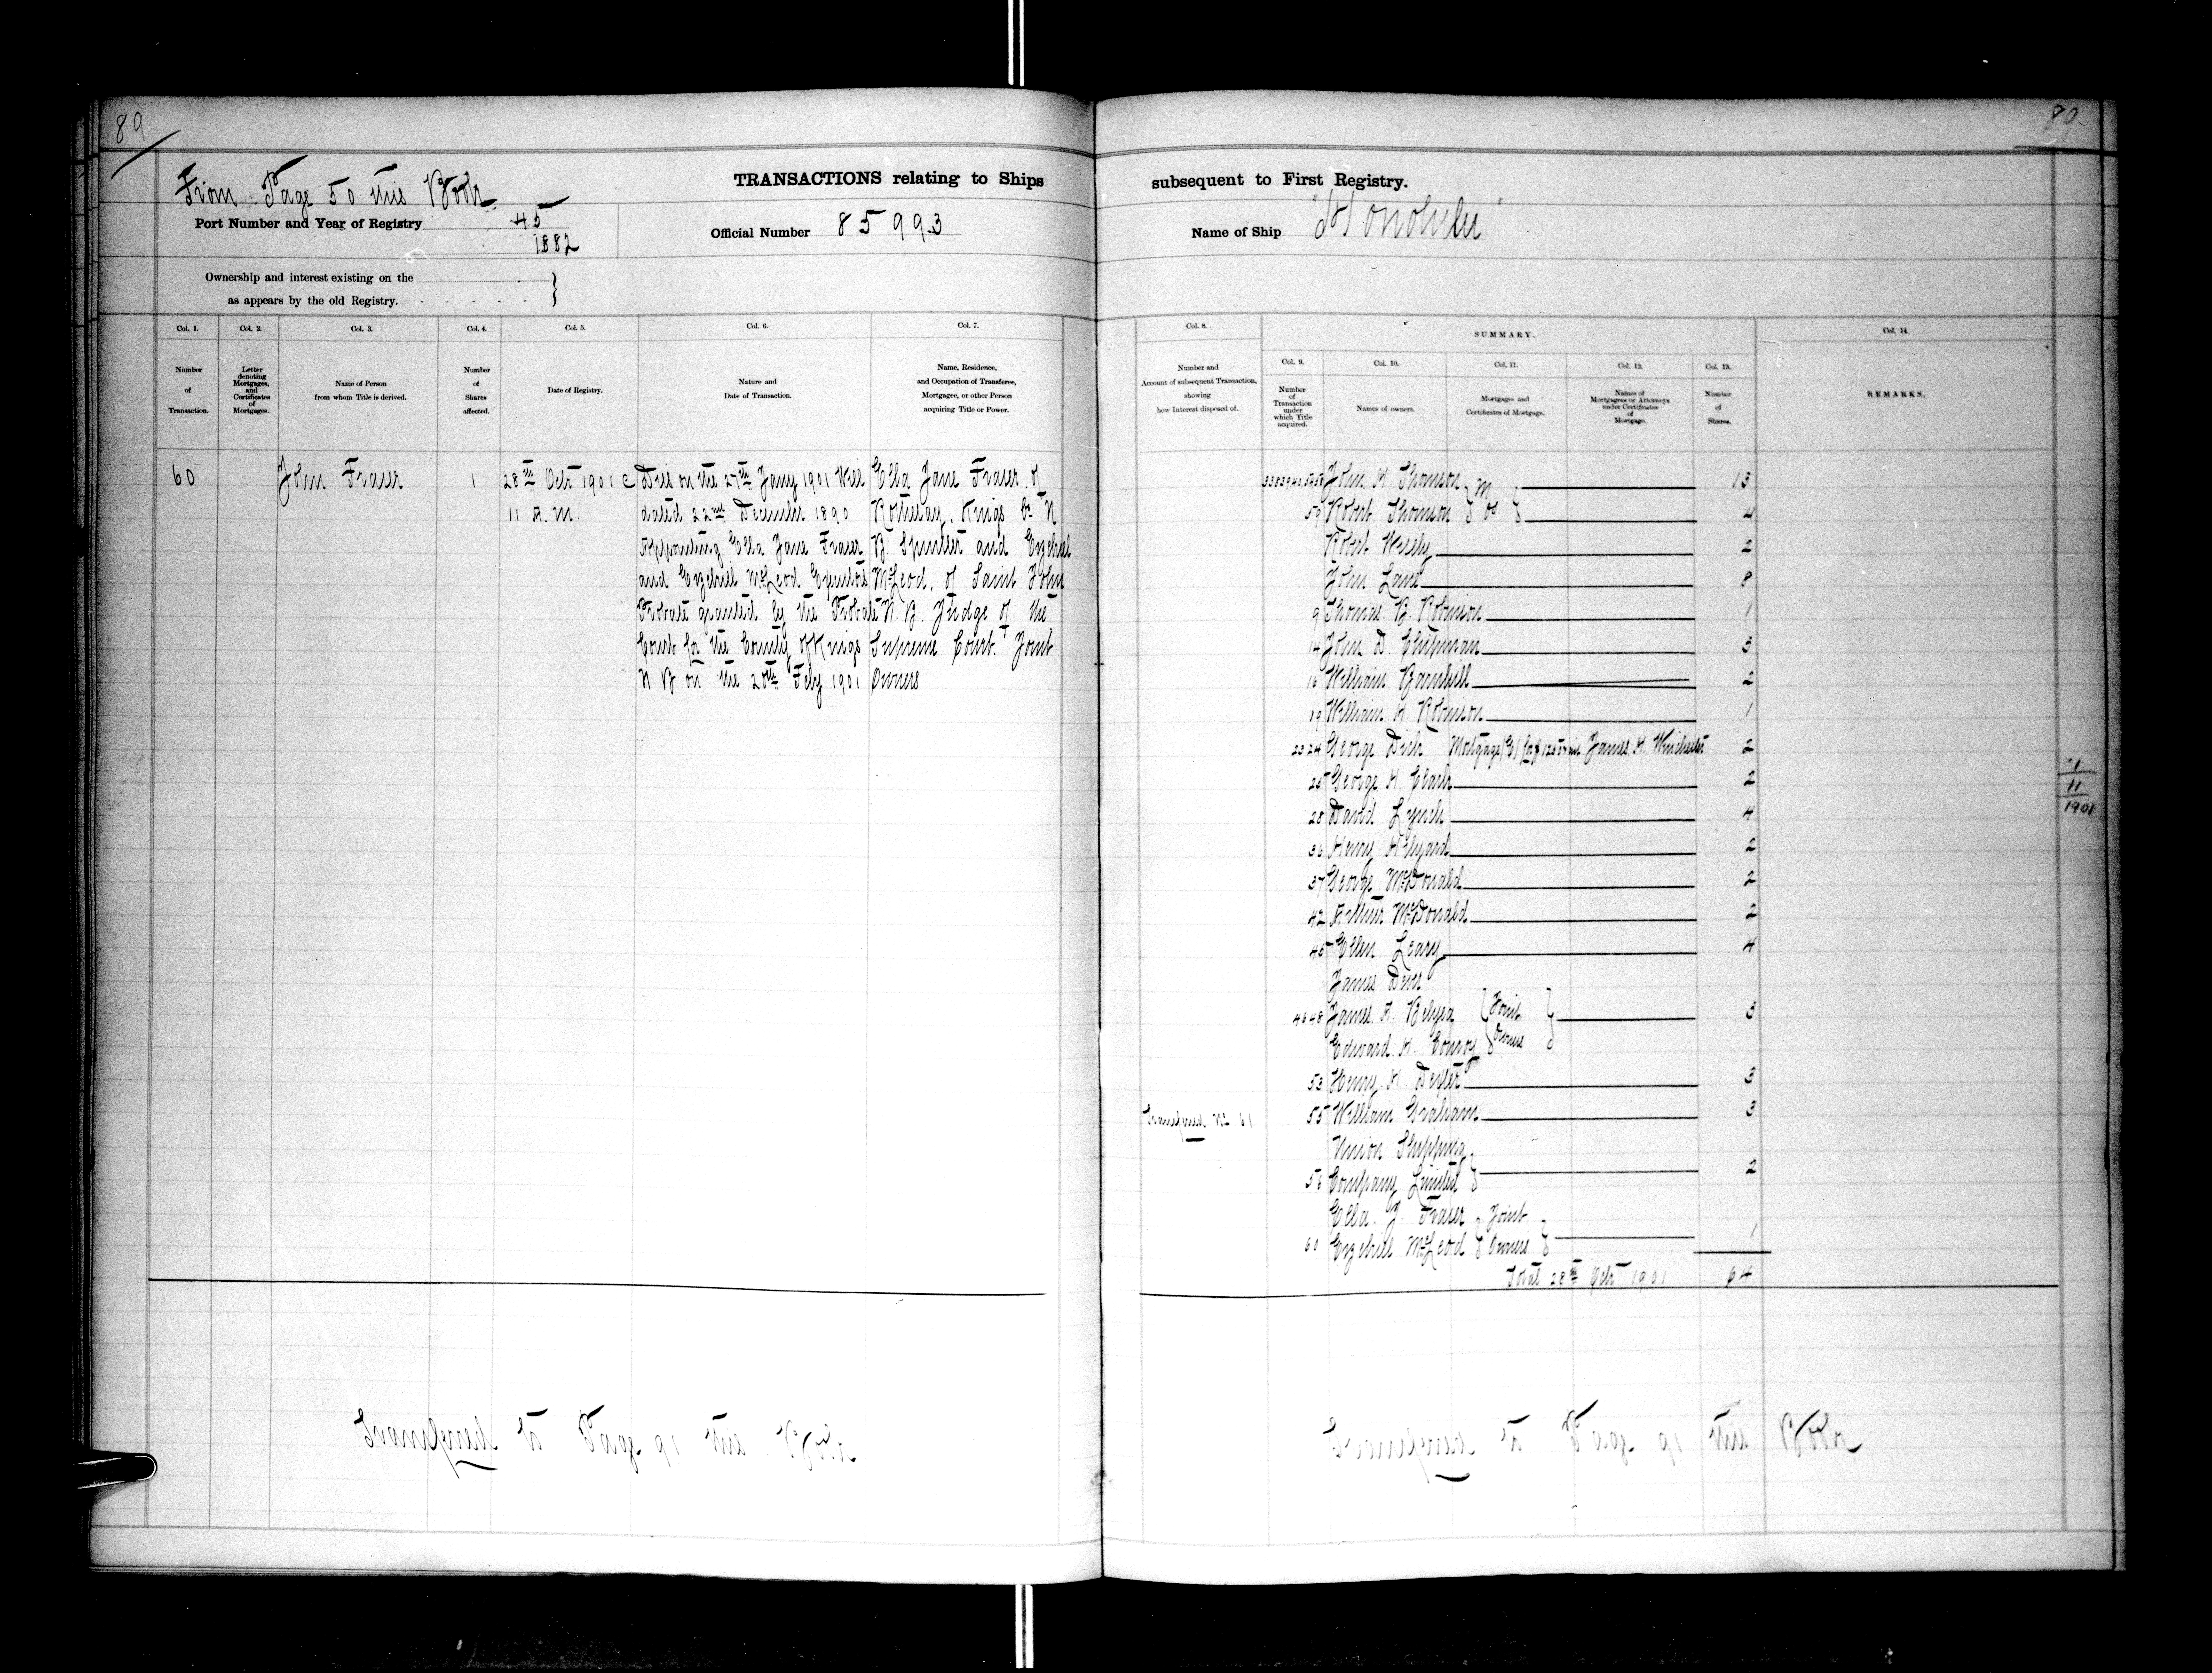 89
89
From Page 50 this Book
TRANSACTIONS relating to Ships subsequent to First Registry.
Port Number and Year of Registry 45
1882
Official Number 85993
Name of Ship "Honolulu"
Ownership and interest existing on the
as appears by the old Registry.
Col. 1.
Number
of
Transaction.
Col. 2.
Letter
denoting
Mortgages,
and
Certificates
of
Mortgages.
Col. 3.
Name of Person
from whom Title is derived.
Col. 4.
Number
of
Shares
affected.
Col. 5.
Date of Registry.
Col. 6.
Nature and
Date of Transaction.
Col. 7.
Name, Residence,
and Occupation of Transferee,
Mortgagee, or other Person
acquiring Title or Power.
Col. 8.
Number and
Account of subsequent Transaction,
showing
how Interest disposed of.
SUMMARY.
Col. 9.
Number
of
Transaction
under
which Title
acquired.
Col. 10.
Names of owners.
Col. 11.
Mortgages and
Certificates of Mortgage.
Col. 12.
Names of
Mortgagees or Attorneys
under Certificates
of
Mortgage.
Col. 13.
Number
of
Shares.
Col. 14.
REMARKS.
60
John Fraser
1
28th Oct 1901 @
11 A.M.
Died on the 27th Jany 1901 Will
dated 22nd December 1890
Appointing Ella Jane Fraser
and Ezekiel McLeod Executors
Probate granted by the Probate
Court for the County of Kings
N B on the 20th Feby 1901
Ella Jane Fraser of
Rothesay, Kings Co N
B. Spinster and Ezekiel
McLeod, of Saint John
N.B. Judge of the
Supreme Court. Joint
Owners
John H. Thomson M 13
59 Robert Thomson 4
Robert 2
John Lane 8
9 Thomas B. Robinson 1
14 John D. Chipman 3
16 William Barnhill 2
19 William H Robinson 1
23 24 George Dick Mortgage James H. Winchester 2
25 George H. Clark 2
28 David Lynch 4
36 Henry Hilyard 2
37 George McDonald 2
42 Arthur McDonald 2
45 Ellen Leary 4
James
46 48 James A. Belyea Joint 3
Edward H. Conroy Owners
53 Henry H. Dexter 3
Transferred No 61
55 William Graham 3
Union Shipping
56 Company Limited 2
Ella J. Fraser Joint
60 Ezekiel McLeod Owners 1
Total 28th Oct 1901 64
1
11
1901
Transferred to Page 91 this Book
Transferred to Page 91 this Book